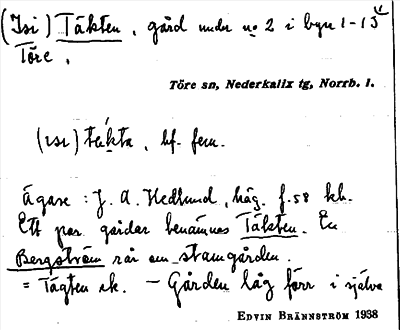 (Isi) Täkten, gård under no 2 i byn 1-13
Töre.
Töre sn, Nederkalix tg, Norrb. l.
(ısı) tɛ́kta, bf. fem.
Ägare: J. A. Hedlund, häg. f. 58 kh.
Ett par gårdar benämnes Täkten. En
Bergström rår om stamgården.
= Tägten ek. — Gården låg förr i själva
EDVIN BRÄNNSTRÖM 1938